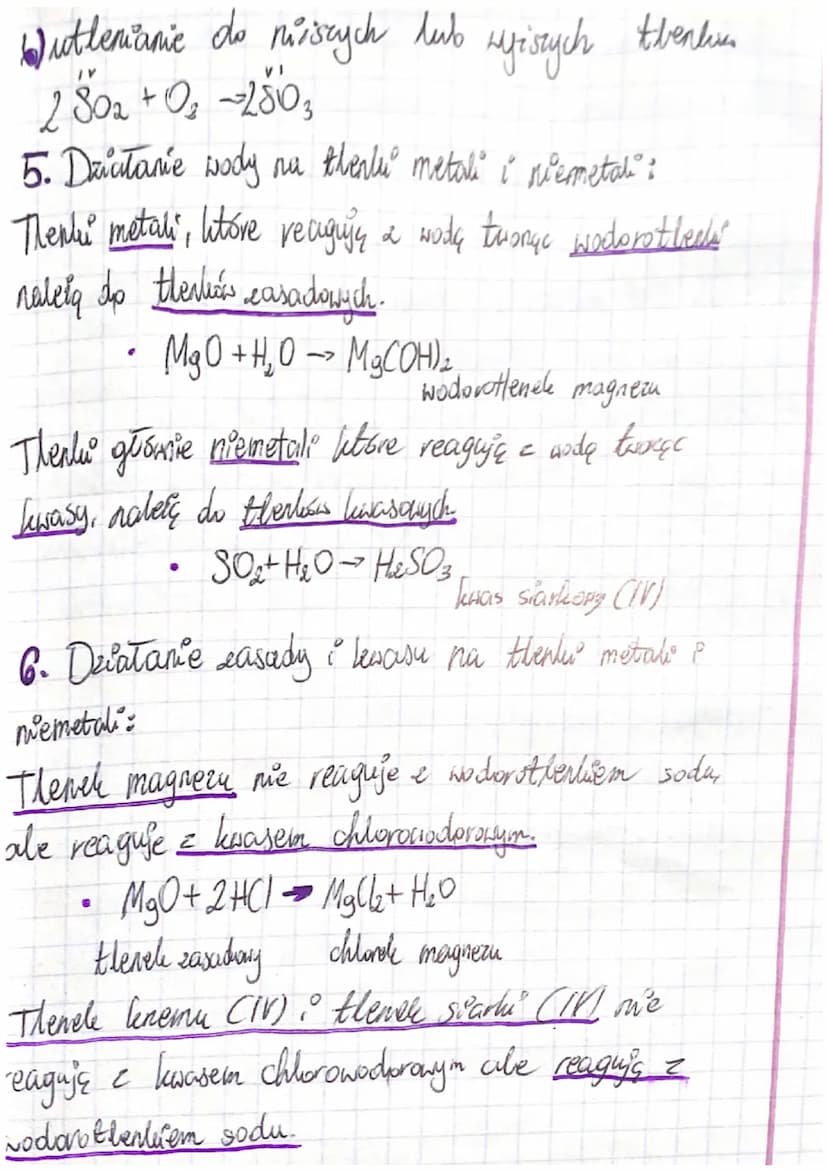 b) utlenianie do niższych lub wyższych tlenków
IV VI
2 SO₂ + O₂ → 2SO₃
5. Działanie wody na tlenki metali i niemetali:
Tlenki metali, które reagują z wodą tworząc wodorotlenki
należą do tlenków zasadowych.
• MgO + H₂O → Mg(OH)₂
wodorotlenek magnezu
Tlenki głównie niemetali które reagują z wodą tworząc
kwasy, należą do tlenków kwasowych
• SO₂ + H₂O → H₂SO₃
kwas siarkowy (IV)
6. Działanie zasady i kwasu na tlenki metali i
niemetali:
Tlenek magnezu nie reaguje z wodorotlenkiem sodu,
ale reaguje z kwasem chlorowodorowym.
• MgO + 2HCl → MgCl₂ + H₂O
tlenek zasadowy chlorek magnezu
Tlenek krzemu (IV) i tlenek siarki (IV) nie
reagują z kwasem chlorowodorowym ale reagują z
wodorotlenkiem sodu.